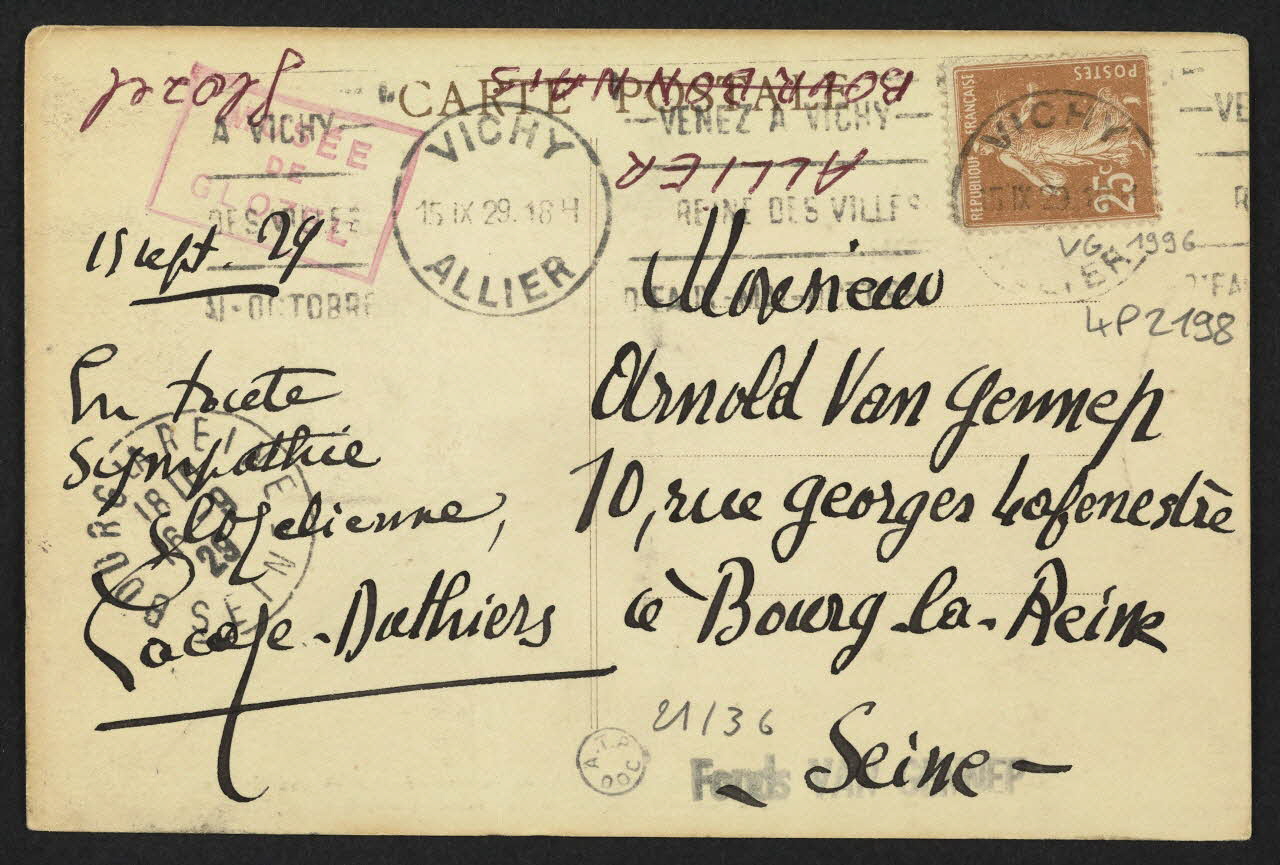 CARTE POSTALE
Glozel
BOURBONNAIS
ALLIER
MUSÉE
DE
GLOZEL
A VICHY
DES VILLES
AI-OCTOBRE
VICHY
15 IX 29. 18 H
ALLIER
VENEZ A VICHY
REINE DES VILLES
POSTES
REPUBLIQUE FRANÇAISE
25c
VICHY
15 IX 29
ALLIER
VE
R
D'EA
VG 1996
4P2198
15 sept. 29
En toute
sympathie
glozélienne,
Lacaze-Duthiers
Monsieur
Arnold Van Gennep
10, rue Georges Lafenestre
à Bourg-la-Reine
Seine
BOURG LA REINE
18 H
16
29
SEINE
21/36
A.T.P
DOC
Fonds VAN GENNEP